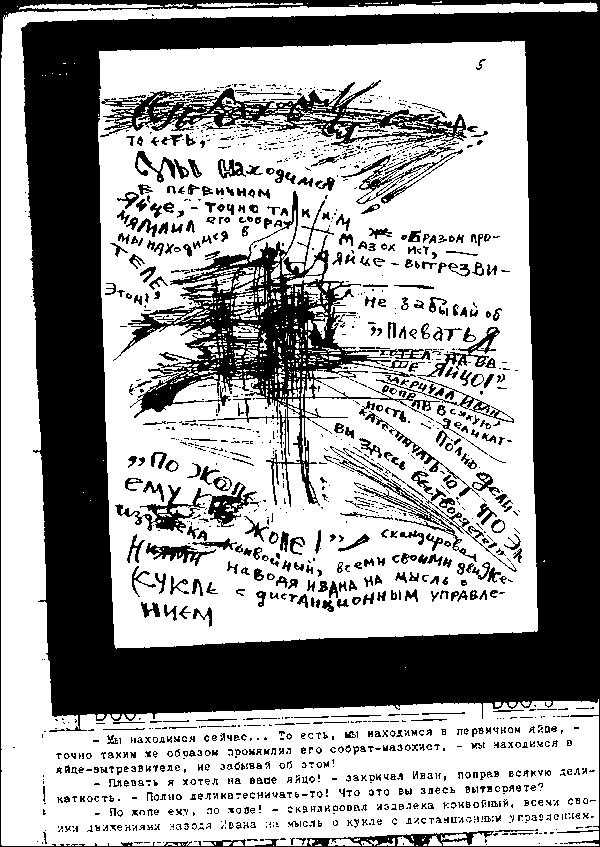 5
то есть,
мы находимся
в первичном
яйце, – точно таким
же образом про-
мямлил его собрат
мазохист, –
мы находимся в
яйце-вытрезви-
теле
не забывай об
этом!
„Плевать я
хотел на ва-
ше яйцо!"–
закричал Иван,
поправ всякую
деликат-
ность. – Полно дели-
катесничать-то! Что это
вы здесь вытворяете?"
„По жопе
ему, по
жопе!" – скандировал
издалека конвойный, всеми своими движе-
ниями наводя Ивана на мысль о
кукле с дистанционным управле-
нием
– Мы находимся сейчас... То есть, мы находимся в первичном яйце, –
точно таким же образом промямлил его собрат-мазохист, – мы находимся в
яйце-вытрезвителе, не забывай об этом!
– Плевать я хотел на ваше яйцо! – закричал Иван, поправ всякую дели-
катность. – Полно деликатесничать-то! Что это вы здесь вытворяете?
– По жопе ему, по жопе! – скандировал издалека конвойный, всеми сво-
ими движениями наводя Ивана на мысль о кукле с дистанционным управлением.